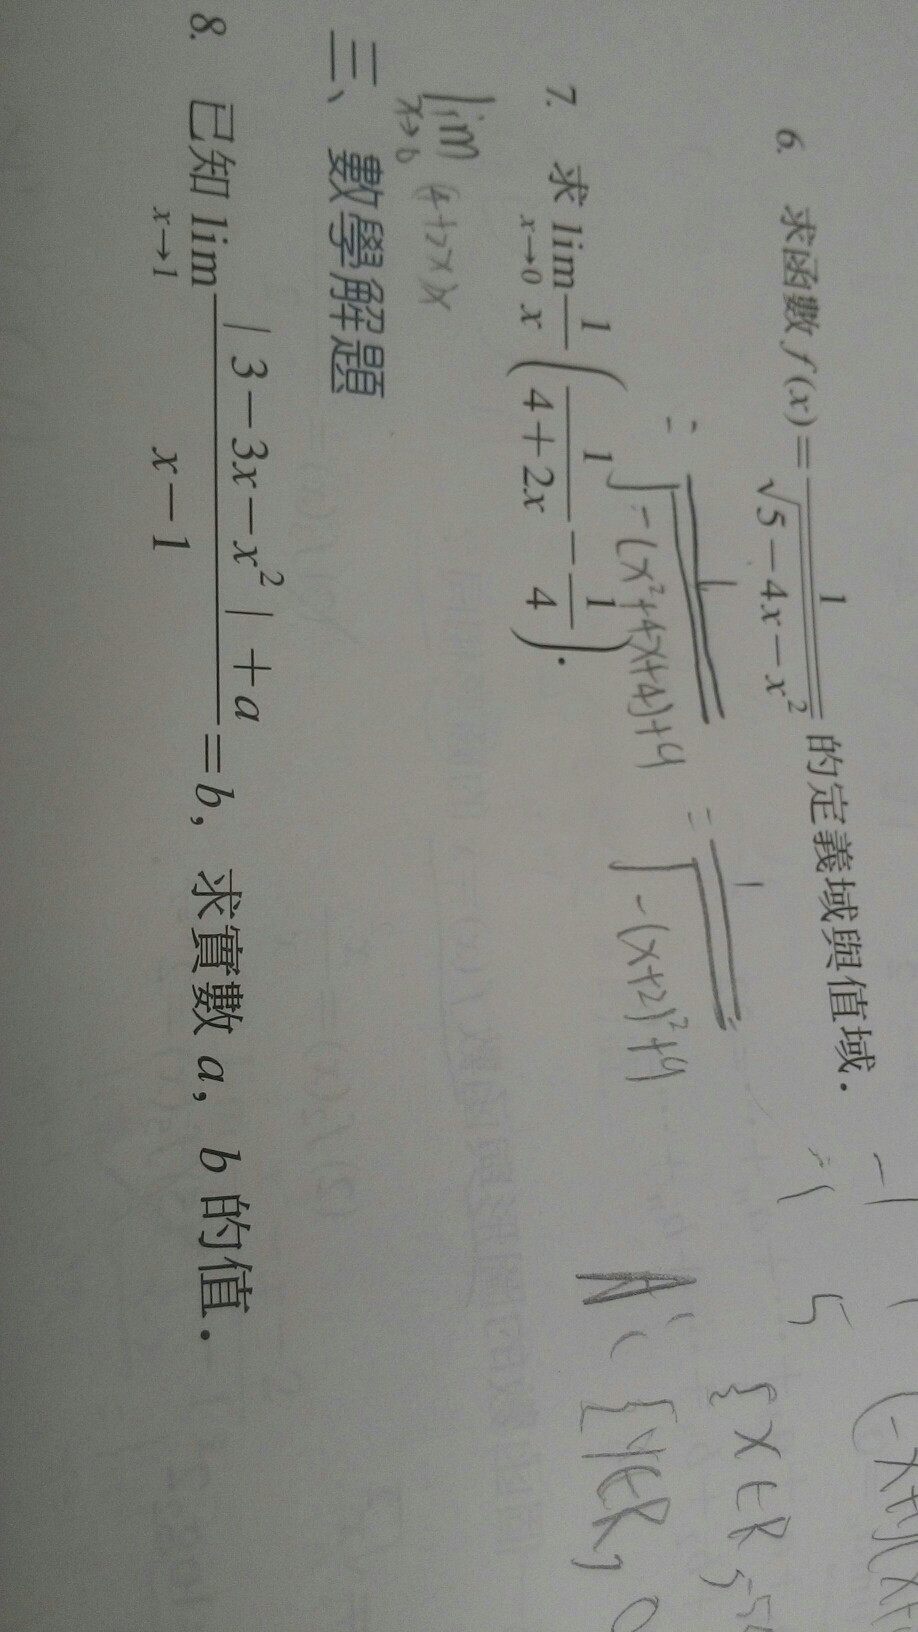 6. 求函數 f(x) = 1/√(5-4x-x²) 的定義域與值域.
= 1/√(-(x²+4x+4)+9) = 1/√(-(x+2)²+9)
{x∈R, -5
{y∈R, 0
7. 求 lim x→0 1/x (1/(4+2x) - 1/4).
lim x→0 (4+2x)x
三、數學解題
8. 已知 lim x→1 (|3-3x-x²|+a)/(x-1) = b, 求實數 a, b 的值.